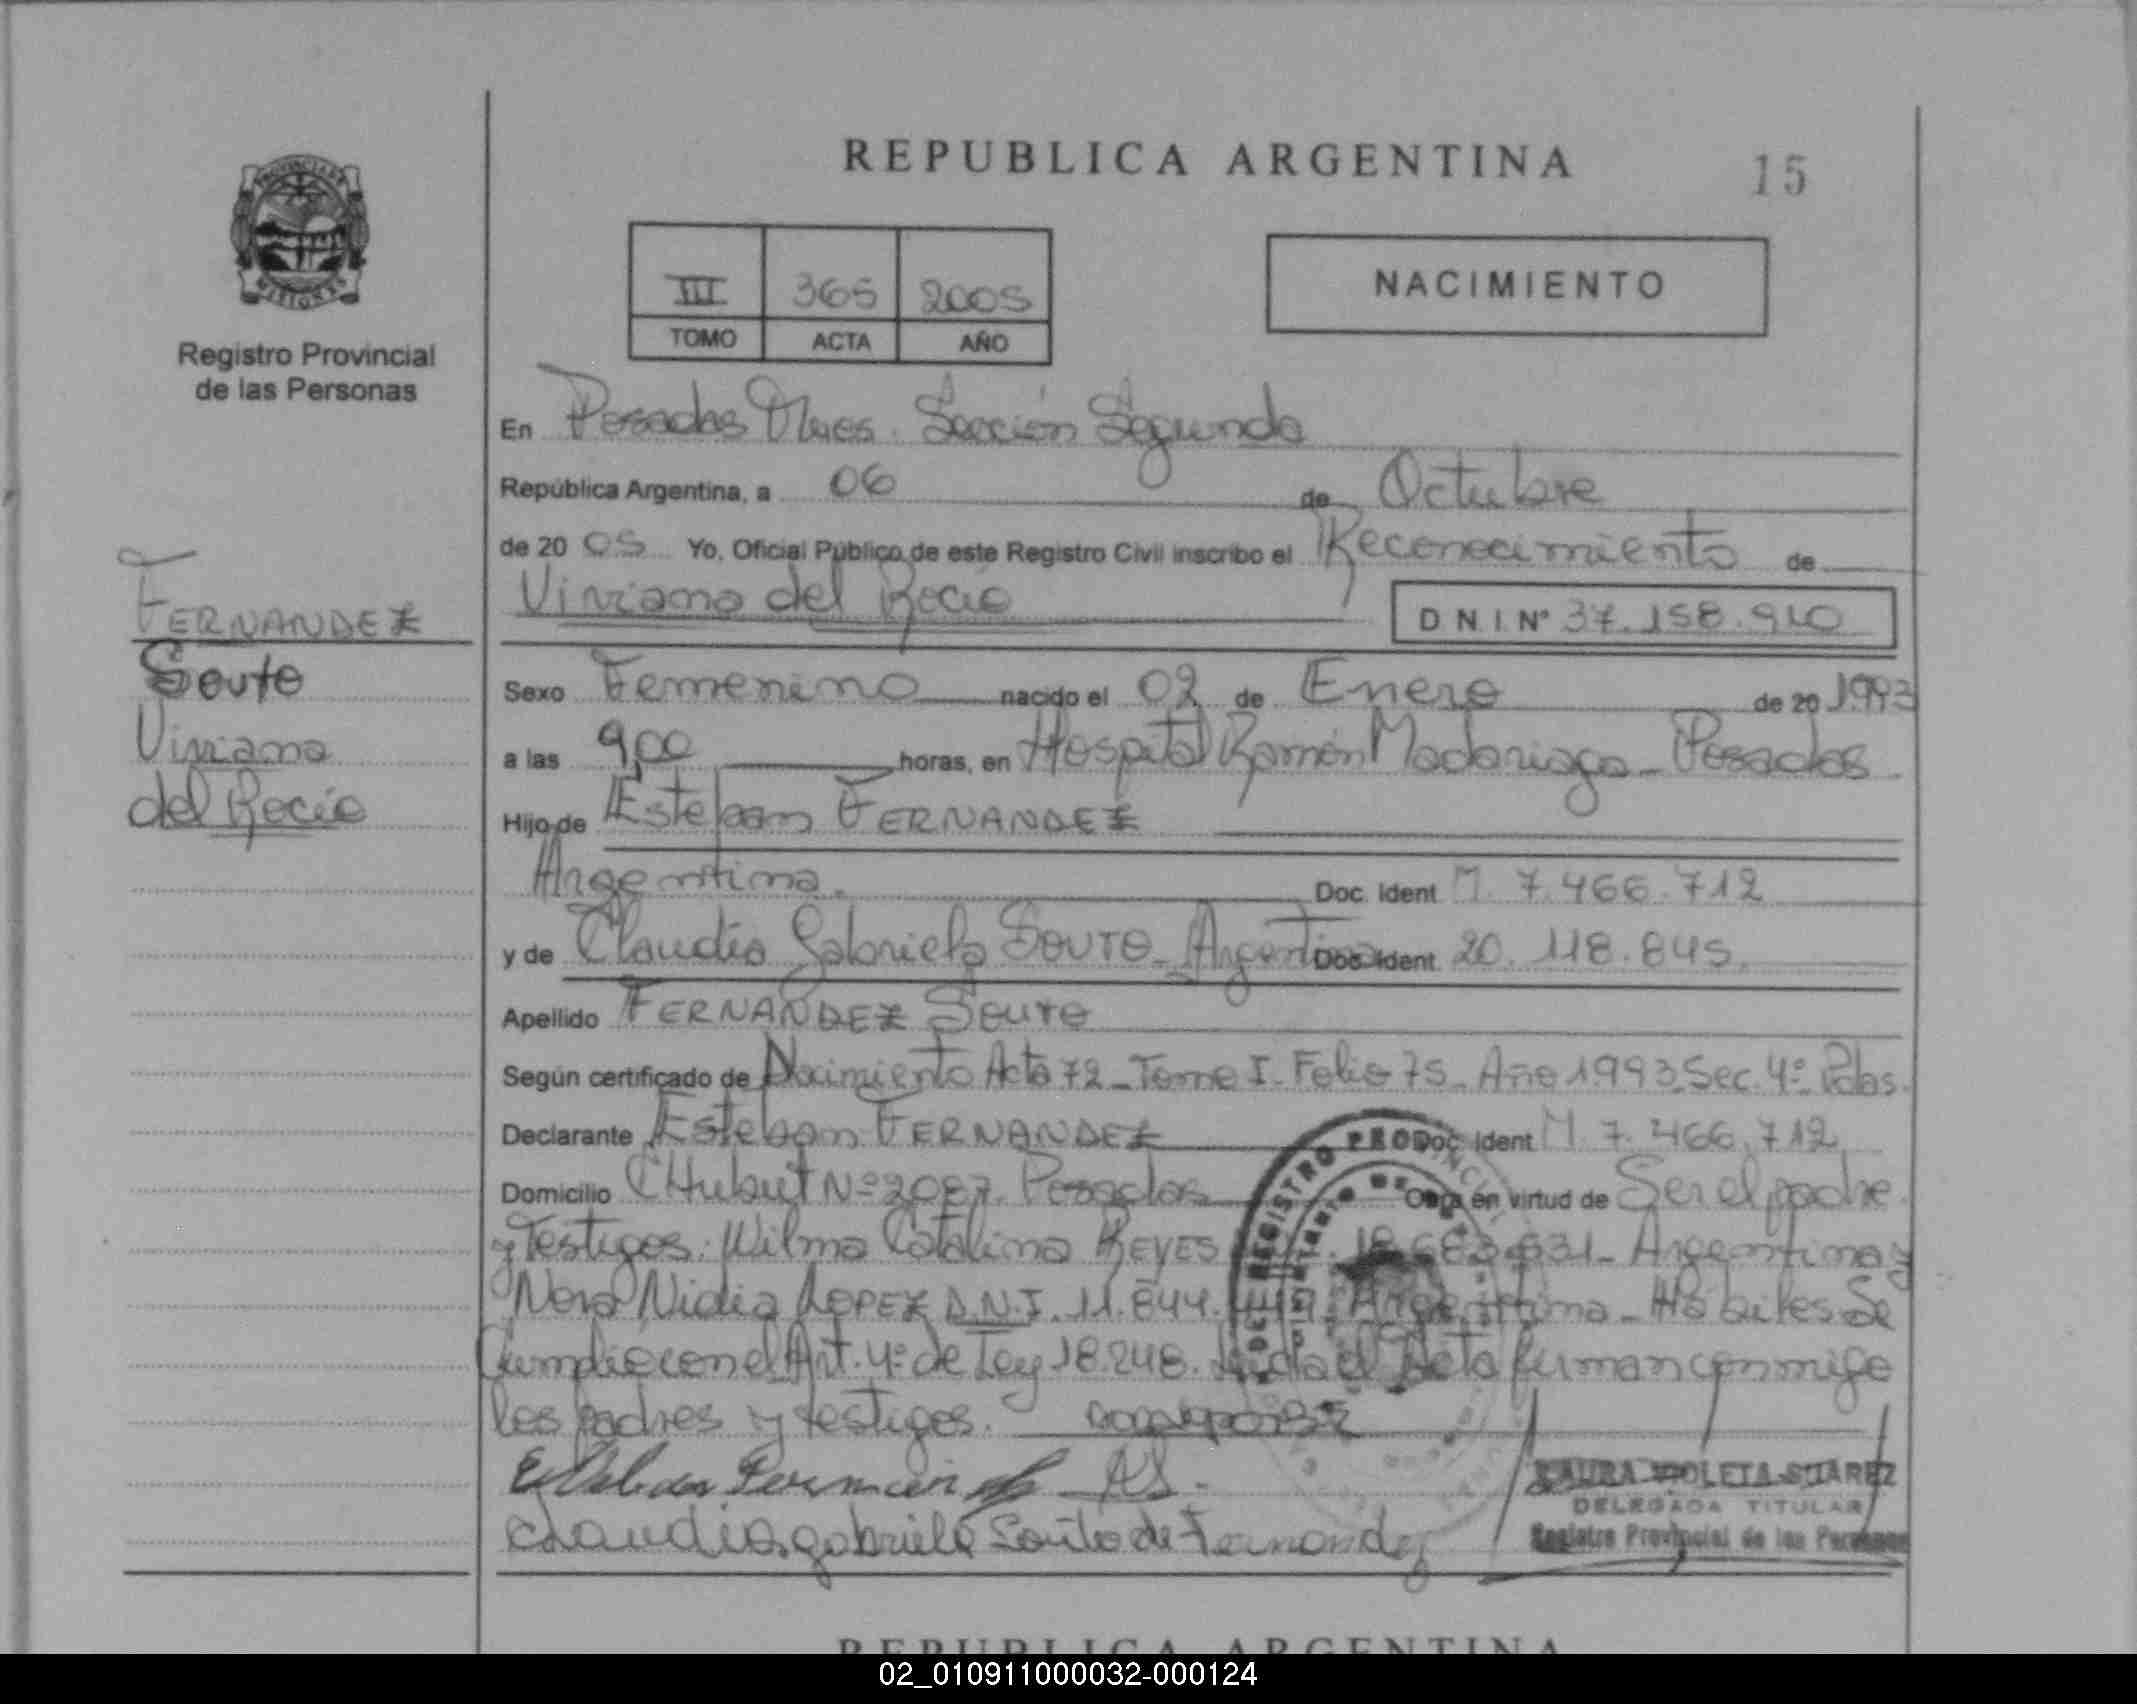 REPUBLICA ARGENTINA
15
PROVINCIA DE MISIONES
Registro Provincial
de las Personas
III 365 2005
TOMO ACTA AÑO
NACIMIENTO
En Posadas Mnes. Sección Segunda
República Argentina, a 06 de Octubre
de 20 05 Yo, Oficial Público de este Registro Civil inscribo el Reconocimiento de
Viviana del Rocío D.N.I. Nº 37.158.910
FERNANDEZ
Souto
Viviana
del Rocío
Sexo Femenino nacido el 02 de Enero de 20 1993
a las 9,00 horas, en Hospital Ramón Madariaga - Posadas
Hijo de Esteban FERNANDEZ
Argentina. Doc. Ident. M. 7.466.712
y de Claudia Gabriela SOUTO - Argentina Doc. Ident. 20.118.845
Apellido FERNANDEZ SOUTO
Según certificado de Nacimiento Acta 72 - Tomo I. Folio 75 - Año 1993 Sec. 4º Pdas.
Declarante Esteban FERNANDEZ Doc. Ident. M. 7.466.712
Domicilio CHubut Nº 2087 Posadas Obra en virtud de Ser el padre
y Testigos: Wilma Catalina REYES Argentina y
Nora Nidia LOPEZ D.N.I. 11.844. Argentina - Hábiles Se
Cumplió con el Art. 4º de Ley 18.248. Leída el Acta firman conmigo
los padres y testigos.
Esteban Fernandez
Claudia gabriela Souto de Fernandez
REGISTRO PROVINCIAL DE
LAURA VIOLETA SUAREZ
DELEGADA TITULAR
Registro Provincial de las Personas
REPUBLICA ARGENTINA
02_010911000032-000124